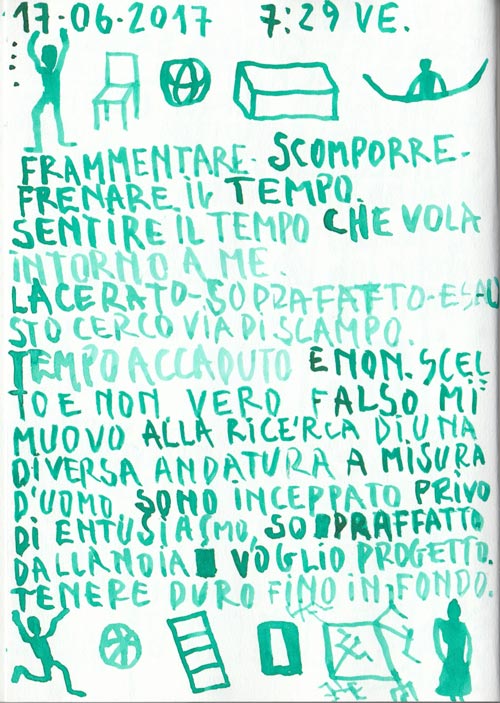 17·06·2017 7:29 VE.
FRAMMENTARE· SCOMPORRE·
FRENARE IL TEMPO.
SENTIRE IL TEMPO CHE VOLA
INTORNO A ME.
LACERATO-SOPRAFATTO-ESAU
STO CERCO VIA DI SCAMPO.
TEMPO ACCADUTO E NON. SCEL
TO E NON VERO FALSO MI
MUOVO ALLA RICERCA DI UNA
DIVERSA ANDATURA A MISURA
D'UOMO SONO INCEPPATO PRIVO
DI ENTUSIASMO, SOPRAFFATTO
DALLA NOIA VOGLIO PROGETTO.
TENERE DURO FINO IN FONDO.